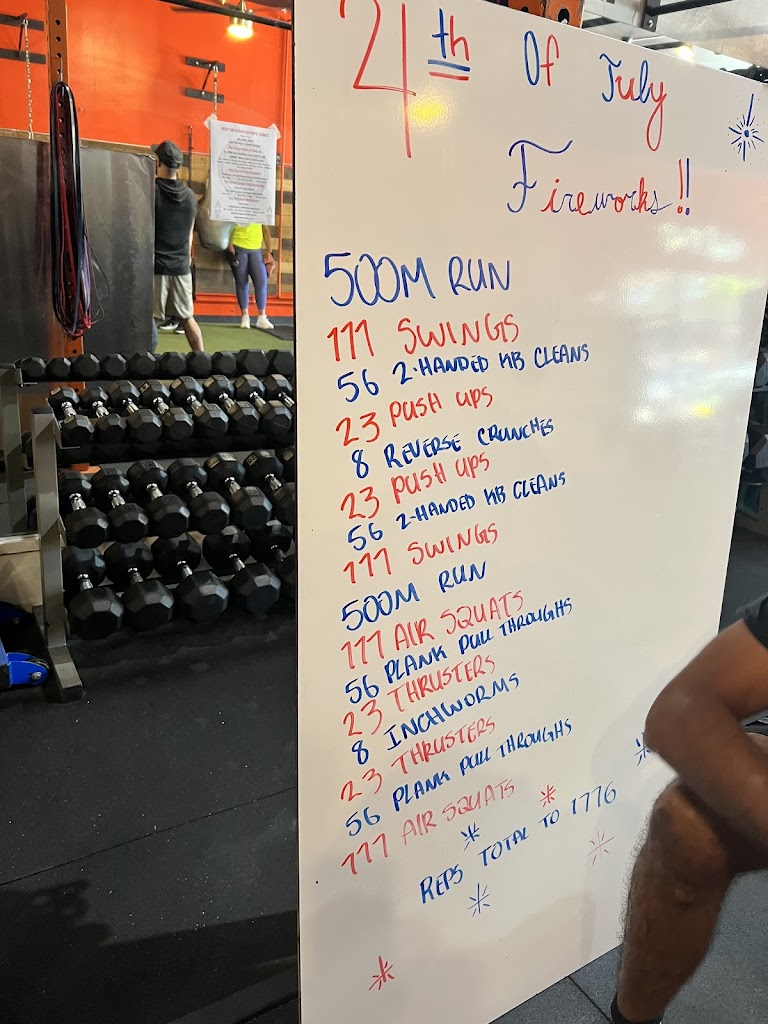 4th Of July
Fireworks!!
500M RUN
111 SWINGS
56 2-HANDED KB CLEANS
23 PUSH UPS
8 REVERSE CRUNCHES
23 PUSH UPS
56 2-HANDED KB CLEANS
111 SWINGS
500M RUN
111 AIR SQUATS
56 PLANK PULL THROUGHS
23 THRUSTERS
8 INCHWORMS
23 THRUSTERS
56 PLANK PULL THROUGHS
111 AIR SQUATS
REPS TOTAL TO 1776